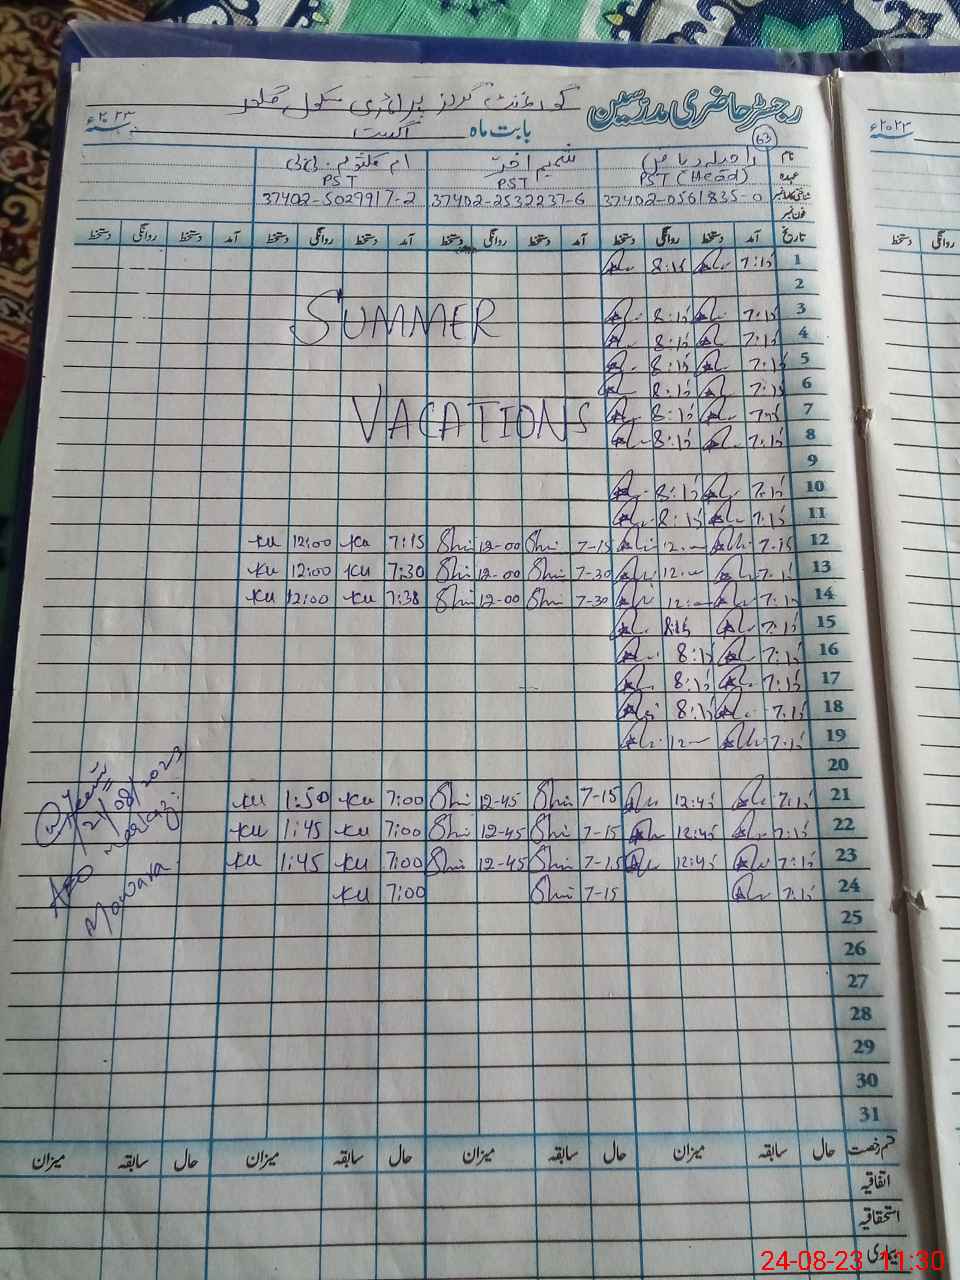 رجسٹر حاضری مدرسین گورنمنٹ گرلز پرائمری سکول
بابت ماہ اگست ۲۰۲۳ء
۲۰۲۳ء
63
نام شمیم اختر
عہدہ PST (Head) PST PST
شناختی کارڈ نمبر 37402-0561835-0 37402-2532237-6 37402-5029917-2
فون نمبر
تاریخ آمد دستخط روانگی دستخط آمد دستخط روانگی دستخط آمد دستخط روانگی دستخط آمد دستخط روانگی دستخط
روانگی دستخط
1 7:15 8:15
2
3 7:15 8:15
SUMMER
4 7:15 8:15
5 7:15 8:15
6 7:15 8:15
7 7:15 8:15
VACATIONS
8 7:15 8:15
9
10 7:15 8:15
11 7:15 8:15
12 7:15 12 7-15 Shi 12-00 Shi 7:15 Ku 12:00 Ku
13 7:15 12 7-30 Shi 12-00 Shi 7:30 Ku 12:00 Ku
14 7:15 12 7-30 Shi 12-00 Shi 7:38 Ku 12:00 Ku
15 7:15 8:15
16 7:15 8:15
17 7:15 8:15
18 7:15 8:15
19 7:15 12
20
21 7:15 12:45 7-15 Shi 12-45 Shi 7:00 Ku 1:50 Ku
22 7:15 12:45 7-15 Shi 12-45 Shi 7:00 Ku 1:45 Ku
23 7:15 12:45 7-15 Shi 12-45 Shi 7:00 Ku 1:45 Ku
24 7:15 7-15 Shi 7:00 Ku
21/08/2023
AEO Markaz
Mowara
25
26
27
28
29
30
31
قسم رخصت حال سابقہ میزان حال سابقہ میزان حال سابقہ میزان حال سابقہ میزان
اتفاقیہ
استحقاقیہ
بیماری
24-08-23 11:30